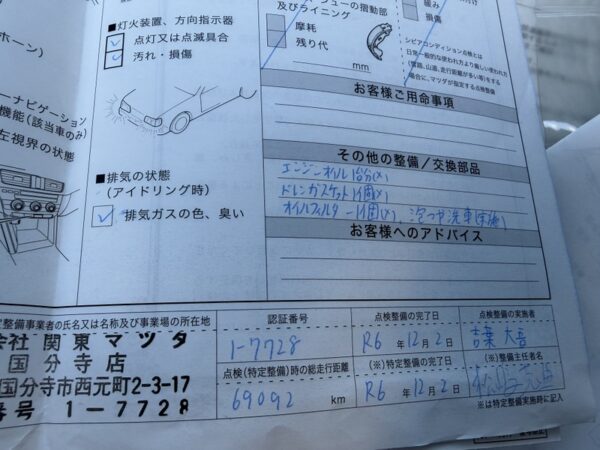 ホーン)
ーナビゲーション
機能(該当車のみ)
左視界の状態
■灯火装置、方向指示器
点灯又は点滅具合
汚れ・損傷
■排気の状態
(アイドリング時)
排気ガスの色、臭い
シューの摺動部
及びライニング
摩耗
残り代
mm
緩み
損傷
シビアコンディション点検とは
日常一般的な使われ方より厳しい使われ方
(雪路、山道、走行距離が多い等)をする
場合に、マツダが指定する点検整備
お客様ご用命事項
その他の整備/交換部品
エンジンオイル
ドレンガスケット1個
オイルフィルター1個
お客様へのアドバイス
定整備事業者の氏名又は名称及び事業場の所在地
会社 関東マツダ
国分寺店
国分寺市西元町2-3-17
番号 1-7728
認証番号
1-7728
点検(特定整備)時の総走行距離
69092 km
点検整備の完了日
R6年12月2日
(※)特定整備の完了日
R6年12月2日
点検整備の実施者
(※)整備主任者名
※は特定整備実施時に記入